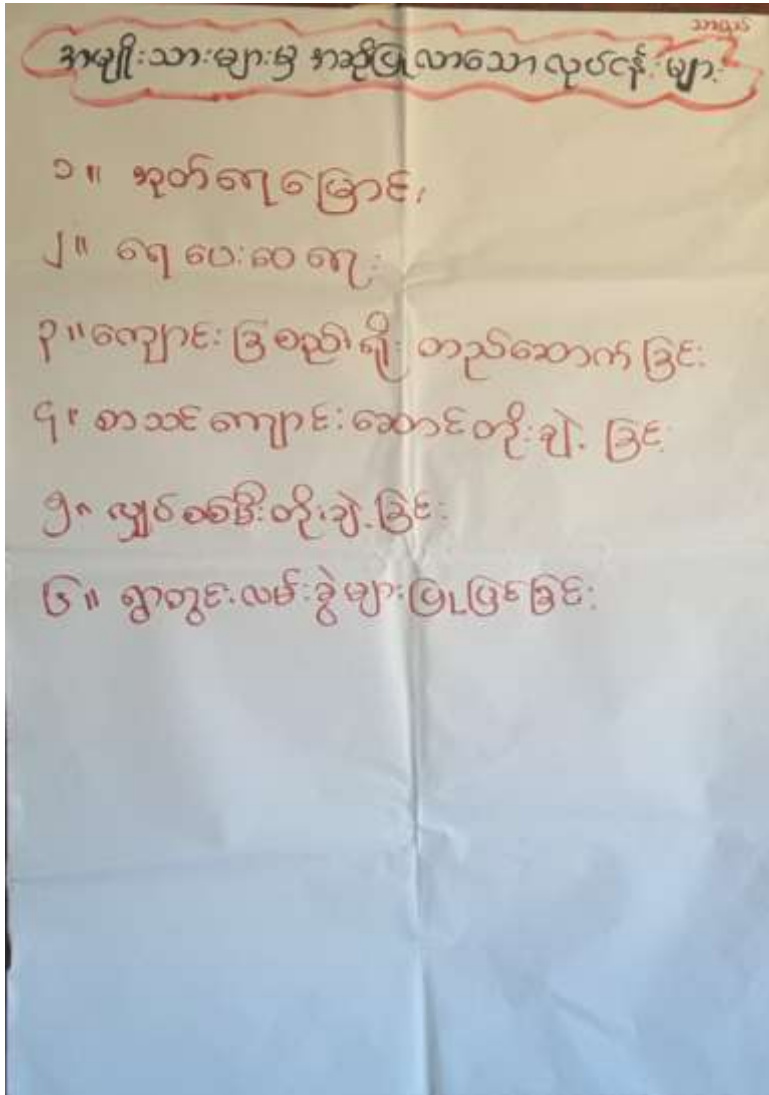 အမျိုးသားများမှ အဆိုပြုလာသော လုပ်ငန်းများ
၁။ အုတ်ရေမြောင်း
၂။ ရေပေးဝေရေး
၃။ ကျောင်းခြံစည်းရိုး တည်ဆောက်ခြင်း
၄။ စာသင်ကျောင်းဆောင်တိုးချဲ့ခြင်း
၅။ လျှပ်စစ်မီးတိုးချဲ့ခြင်း
၆။ ရွာတွင်းလမ်းခွဲများပြုပြင်ခြင်း